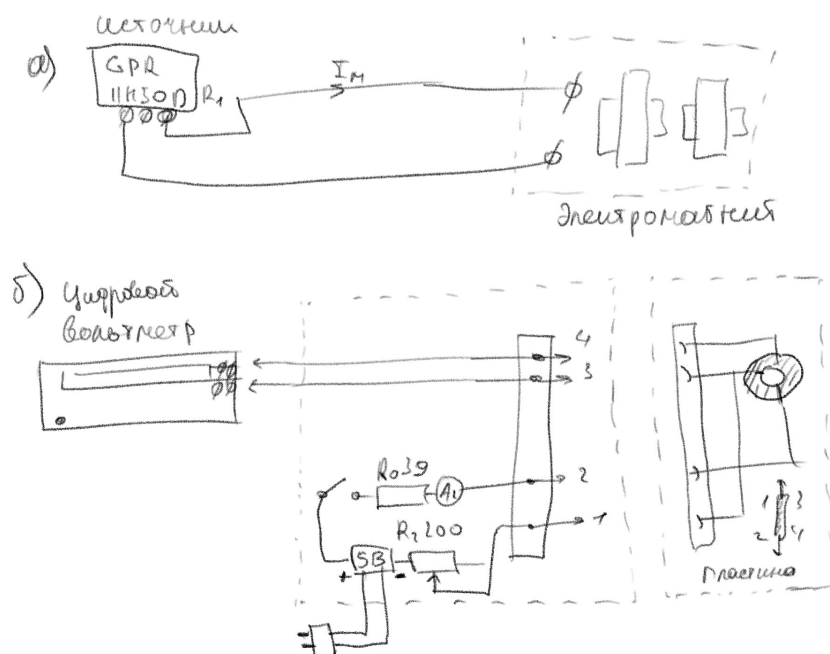 источник
а)
GPR
11H30D R₁
Iм
Электромагнит
б) Цифровой
вольтметр
4
3
R₀39
A₁
2
R₂200
1
5В
+ -
1 3
2 4
пластина